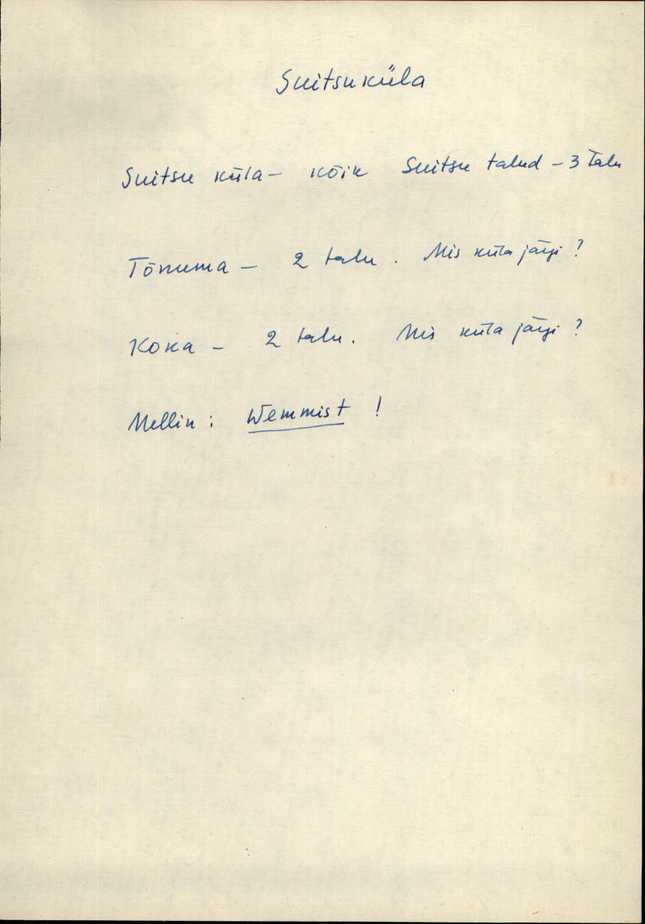 Suitsuküla
Suitsu küla – kõik Suitsu talud – 3 talu
Tõnuma – 2 talu. Mis küla järgi?
Koka – 2 talu. Mis küla järgi?
Mellin: Wemmist!